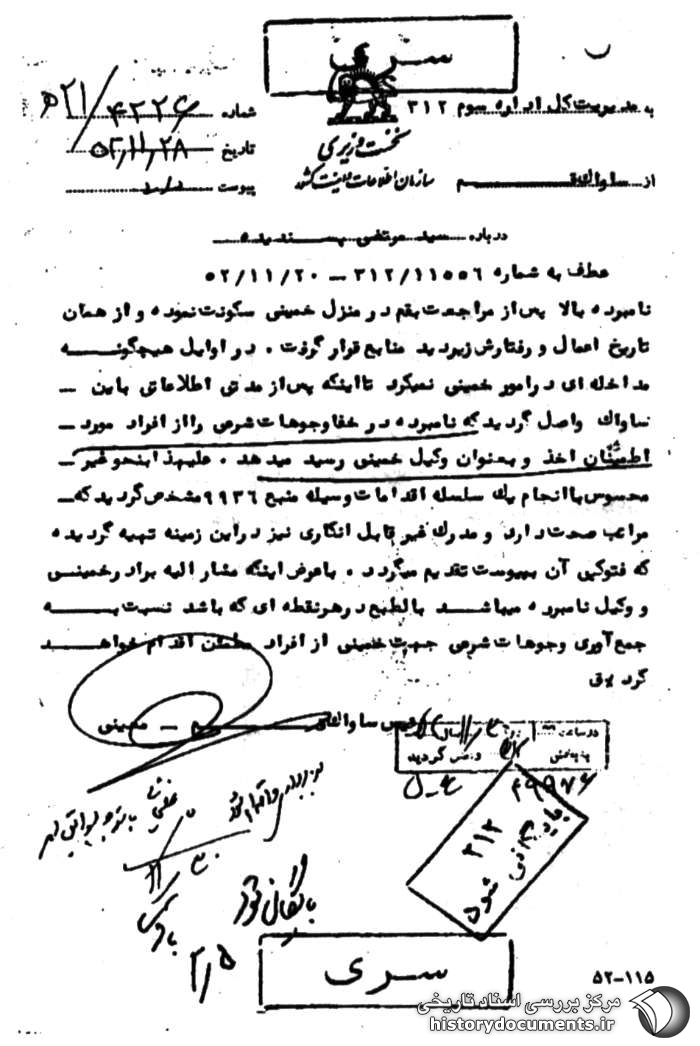 سری
به مدیریت کل اداره سوم ۳۱۲
شماره ۴۲۲۶/۲۱ه
نخست وزیری
تاریخ ۵۲/۱۱/۲۸
سازمان اطلاعات و امنیت کشور
از ساواک قم
پیوست دارد
درباره سید مرتضی پسندیده
عطف به شماره ۳۱۲/۱۱۵۵۶ – ۵۲/۱۱/۲۰
نامبرده بالا پس از مراجعت بقم در منزل خمینی سکونت نموده و از همان
تاریخ اعمال و رفتارش زیر دید منابع قرار گرفت . در اوایل هیچگونه
مداخله ای در امور خمینی نمیکرد تا اینکه پس از مدتی اطلاعاتی باین –
ساواک واصل گردید که نامبرده در خفا وجوهات شرعی را از افراد مورد –
اطمینان اخذ و بعنوان وکیل خمینی رسید میدهد . علیهذا بنحو غیر –
محسوس با انجام یک سلسله اقدامات وسیله منبع ۹۹۳۶ مشخص گردید که –
مراتب صحت دارد و مدرک غیر قابل انکاری نیز در این زمینه تهیه گردیده
که فتوکپی آن بپیوست تقدیم میگردد . با عرض اینکه مشارالیه برادر خمینی
و وکیل نامبرده میباشد بالطبع در هر نقطه ای که باشد نسبت به
جمع آوری وجوهات شرعی جهت خمینی از افراد مطمئن اقدام خواهد
کرد
رئیس ساواک قم – معینی
در ساعت
روز
سال
به بخش
واصل گردید
۳۱۲
بایگانی شود
بایگانی شود
سری
۵۲-۱۱۵
مرکز بررسی اسناد تاریخی
historydocuments.ir